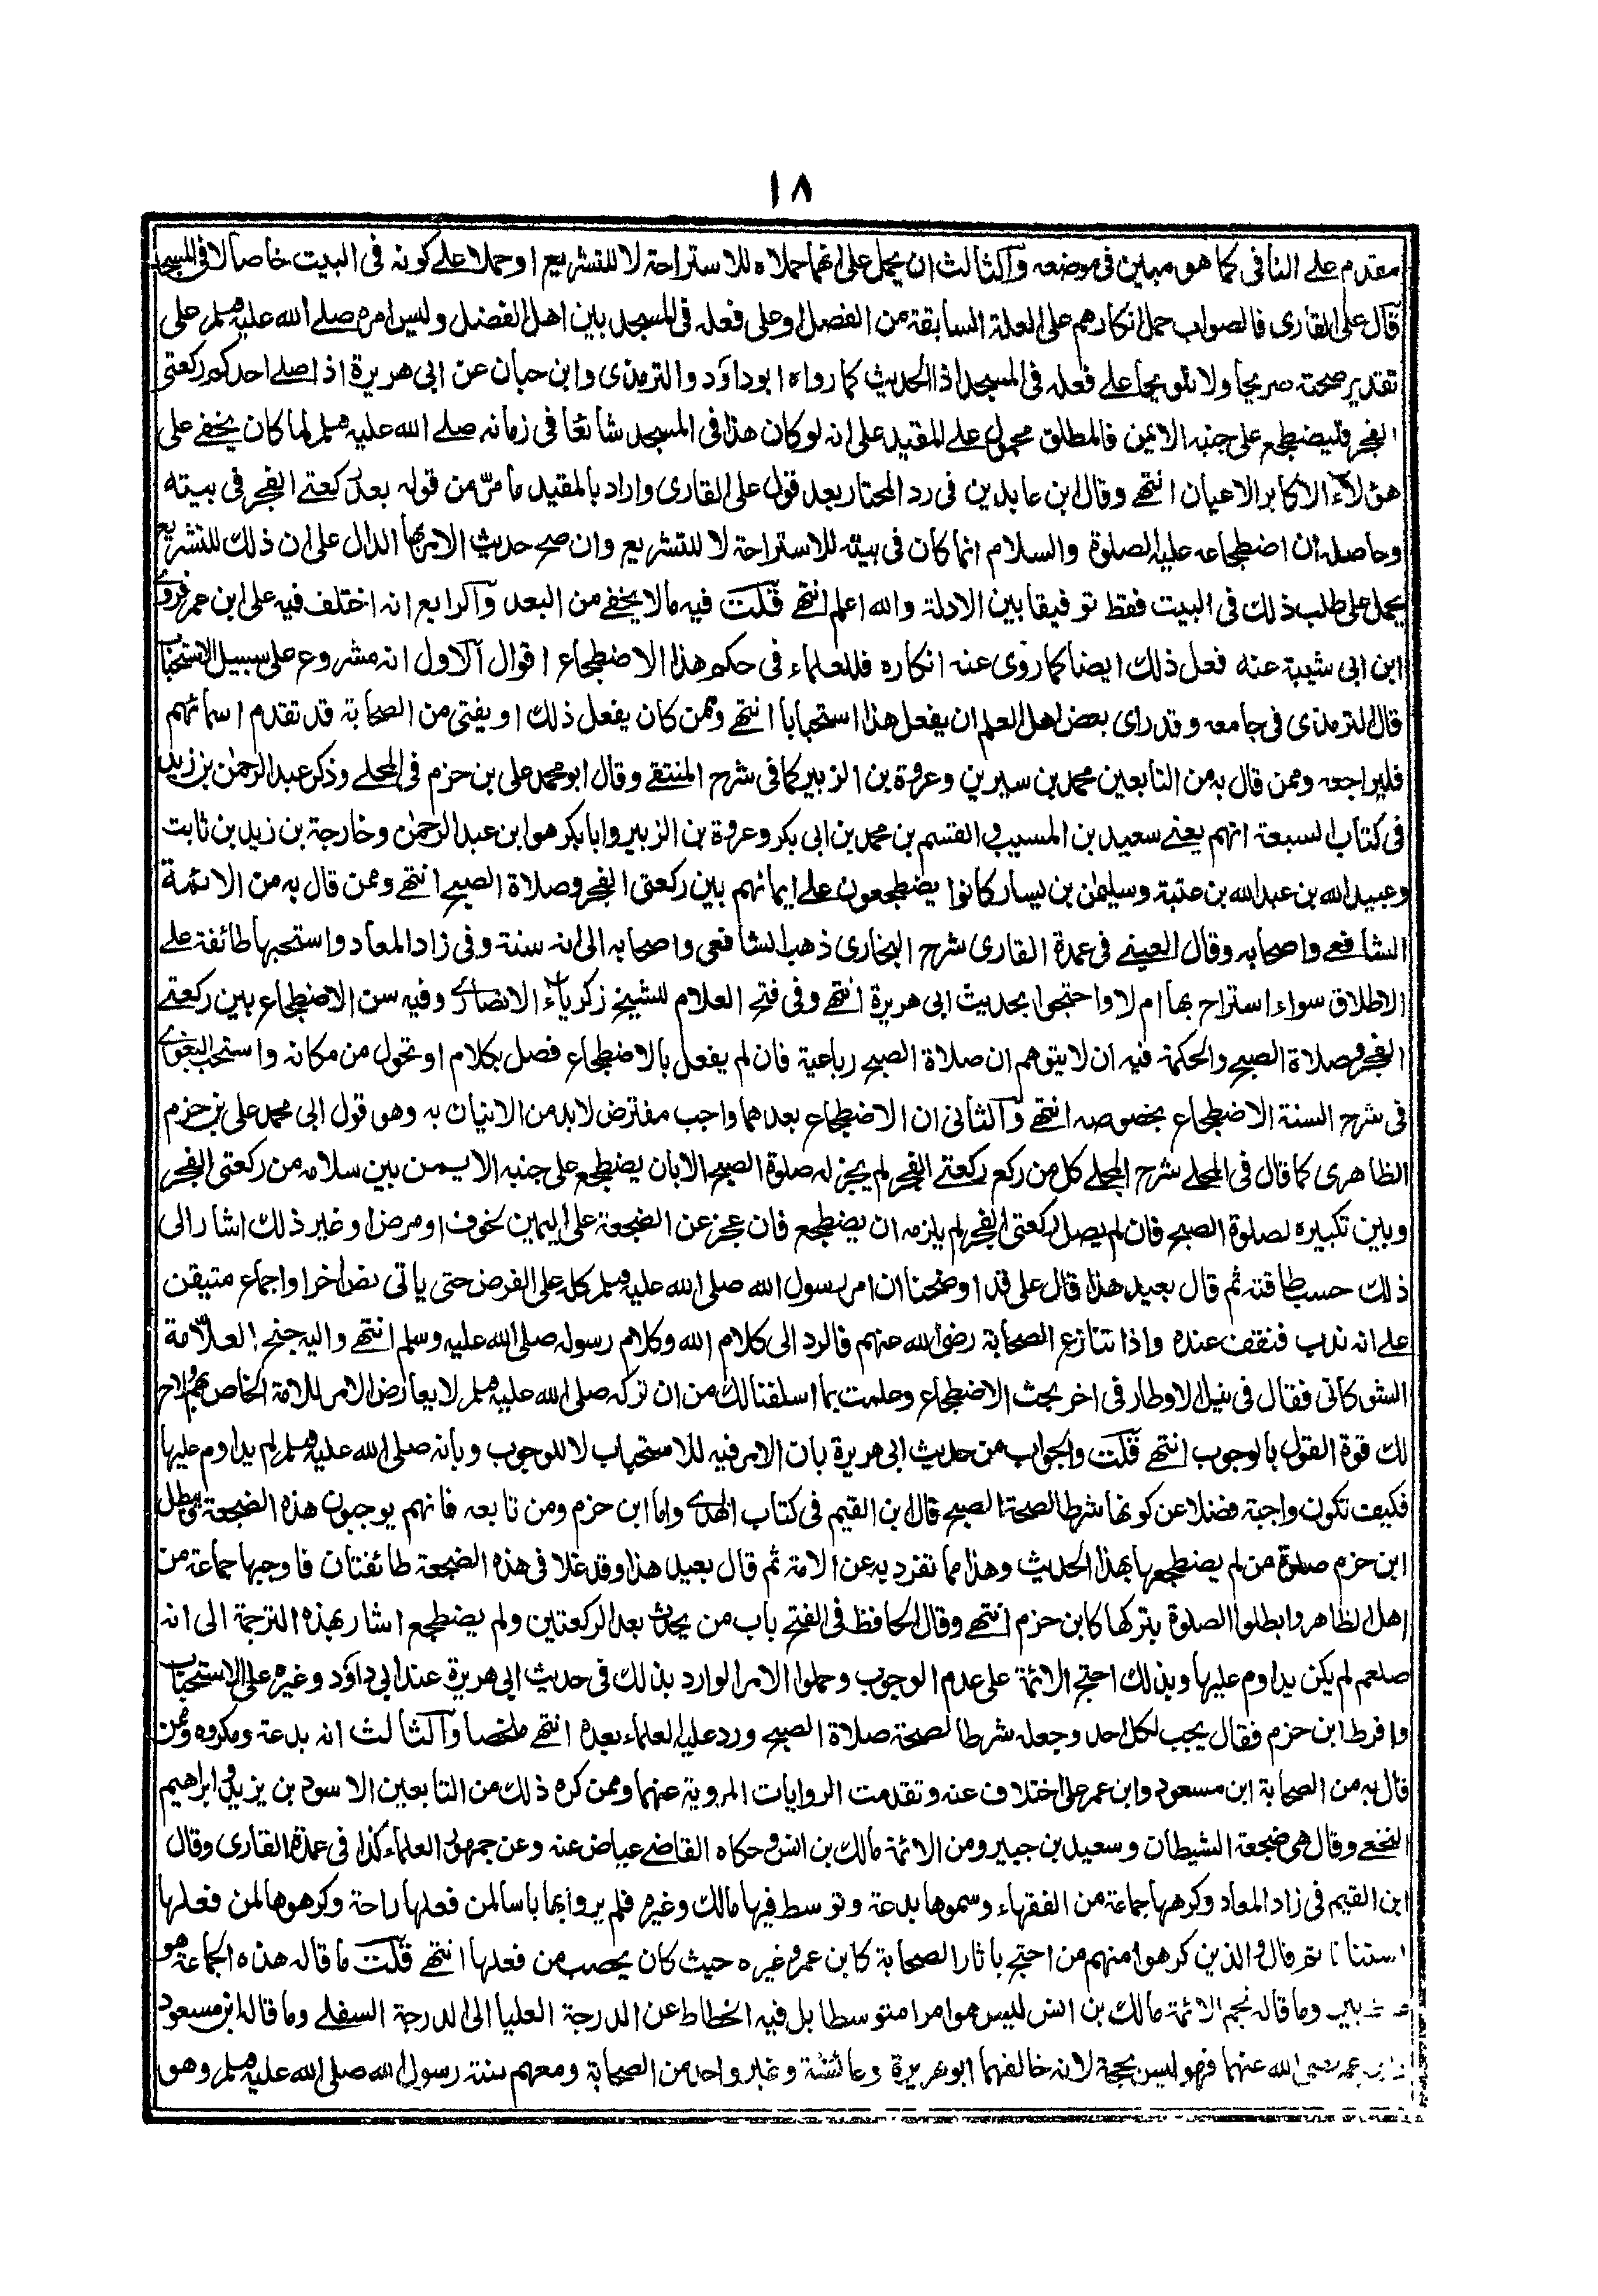 ١٨
مقدم على النافى كما هو مبين فى موضعه والثالث ان يحمل على انهما حملاه للاستراحة لا للتشريع او حملا على كونه فى البيت خاصا لا فى المسجد
قال على القارى فالصواب حمل انكارهم على العلة السابقة من الفصل او على فعله فى المسجد بين اهل الفضل وليس امره صلى الله عليه وسلم على
تقدير صحته صريحا ولا تلويحا على فعله فى المسجد اذ الحديث كما رواه ابوداود والترمذى وابن حبان عن ابى هريرة اذا صلى احدكم ركعتى
الفجر فليضطجع على جنبه الايمن فالمطلق محمول على المقيد على انه لو كان هذا فى المسجد شائعا فى زمانه صلى الله عليه وسلم لما كان يخفى على
هؤلاء الاكابر الاعيان انتهى وقال ابن عابدين فى رد المحتار بعد قول على القارى واراد بالمقيد ما مرّ من قوله بعد ركعتى الفجر فى بيته
وحاصله ان اضطجاعه عليه الصلوة والسلام انما كان فى بيته للاستراحة لا للتشريع وان صح حديث الامر بها الدال على ان ذلك للتشريع
يحمل على طلب ذلك فى البيت فقط توفيقا بين الادلة والله اعلم انتهى قلت فيه ما لا يخفى من البعد والرابع انه اختلف فيه على ابن عمر فروى
ابن ابى شيبة عنه فعل ذلك ايضا كما روى عنه انكاره فللعلماء فى حكم هذا الاضطجاع اقوال الاول انه مشروع على سبيل الاستحباب
قال الترمذى فى جامعه وقد راى بعض اهل العلم ان يفعل هذا استحبابا انتهى وممن كان يفعل ذلك او يفتى من الصحابة قد تقدم اسمائهم
فليراجعه وممن قال به من التابعين محمد بن سيرين وعروة بن الزبير كما فى شرح المنتقى وقال ابو محمد على بن حزم فى المحلى وذكر عبد الرحمن بن زيد
فى كتاب السبعة انهم يعنى سعيد بن المسيب والقسم بن محمد بن ابى بكر وعروة بن الزبير وابا بكر هو ابن عبد الرحمن وخارجة بن زيد بن ثابت
وعبيد الله بن عبد الله بن عتبة وسليمن بن يسار كانوا يضطجعون على ايمانهم بين ركعتى الفجر وصلاة الصبح انتهى وممن قال به من الائمة
الشافعى واصحابه وقال العينى فى عمدة القارى شرح البخارى ذهب الشافعى واصحابه الى انه سنة وفى زاد المعاد واستحبها طائفة على
الاطلاق سواء استراح بها ام لا واحتجوا بحديث ابى هريرة انتهى وفى فتح العلام للشيخ زكرياء الانصارى وفيه سن الاضطجاع بين ركعتى
الفجر وصلاة الصبح والحكمة فيه ان لا يتوهم ان صلاة الصبح رباعية فان لم يفعل بالاضطجاع فصل بكلام او تحول من مكانه واستحب البغوى
فى شرح السنة الاضطجاع بخصوصه انتهى والثانى ان الاضطجاع بعدهما واجب مفترض لابد من الاتيان به وهو قول ابى محمد على بن حزم
الظاهرى كما قال فى المحلى شرح المجلى كل من ركع ركعتى الفجر لم يجز له صلوة الصبح الا بان يضطجع على جنبه الايمن بين سلامه من ركعتى الفجر
وبين تكبيره لصلوة الصبح فان لم يصل ركعتى الفجر لم يلزمه ان يضطجع فان عجز عن الضجعة على اليمين لخوف او مرض او غير ذلك اشار الى
ذلك حسب طاقته ثم قال بعيد هذا قال على قد اوضحنا ان امر رسول الله صلى الله عليه وسلم كله على الفرض حتى ياتى نص اخر او اجماع متيقن
على انه ندب فنقف عنده واذا تنازع الصحابة رضى الله عنهم فالرد الى كلام الله وكلام رسوله صلى الله عليه وسلم انتهى واليه جنح العلامة
الشوكانى فقال فى نيل الاوطار فى اخر بحث الاضطجاع وعلمت بما اسلفنا لك من ان تركه صلى الله عليه وسلم لا يعارض الامر للامة الخاص بهم لاح
لك قوة القول بالوجوب انتهى قلت والجواب من حديث ابى هريرة بان الامر فيه للاستحباب لا للوجوب وبانه صلى الله عليه وسلم لم يداوم عليها
فكيف تكون واجبة فضلا عن كونها شرطا لصحة الصبح قال ابن القيم فى كتاب الهدى واما ابن حزم ومن تابعه فانهم يوجبون هذه الضجعة ويبطل
ابن حزم صلوة من لم يضطجعها بهذا الحديث وهذا مما تفرد به عن الامة ثم قال بعيد هذا وقد غلا فى هذه الضجعة طائفتان فاوجبها جماعة من
اهل الظاهر وابطلوا الصلوة بتركها كابن حزم انتهى وقال الحافظ فى الفتح باب من يحدث بعد الركعتين ولم يضطجع اشار بهذه الترجمة الى انه
صلعم لم يكن يداوم عليها وبذلك احتج الائمة على عدم الوجوب وحملوا الامر الوارد بذلك فى حديث ابى هريرة عند ابى داود وغيره على الاستحباب
وافرط ابن حزم فقال يجب لكل احد وجعله شرطا لصحة صلاة الصبح ورد عليه العلماء بعده انتهى ملخصا والثالث انه بدعة ومكروه وممن
قال به من الصحابة ابن مسعود وابن عمر على اختلاف عنه وتقدمت الروايات المروية عنهما وممن كره ذلك من التابعين الاسود بن يزيد وابراهيم
النخعى وقال هى ضجعة الشيطان وسعيد بن جبير ومن الائمة مالك بن انس وحكاه القاضى عياض عنه وعن جمهور العلماء كذا فى عمدة القارى وقال
ابن القيم فى زاد المعاد وكرهها جماعة من الفقهاء وسموها بدعة وتوسط فيها مالك وغيره فلم يروا بها باسا لمن فعلها راحة وكرهوها لمن فعلها
استنانا ثم قال والذين كرهوا منهم من احتج باثار الصحابة كابن عمر وغيره حيث كان يحصب من فعلها انتهى قلت ما قاله هذه الجماعة هو
وما قاله نجم الائمة مالك بن انس ليس هو امرا متوسطا بل فيه انحطاط عن الدرجة العليا الى الدرجة السفلى وما قاله ابن مسعود
عمر رضى الله عنهما فهو ليس بحجة لانه خالفهما ابوهريرة وعائشة وغير واحد من الصحابة ومعهم سنة رسول الله صلى الله عليه وسلم وهو